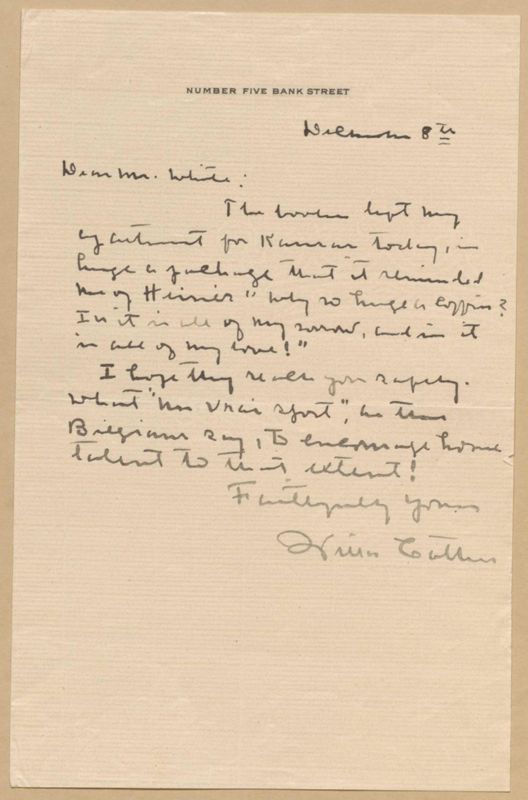 NUMBER FIVE BANK STREET
December 8th
Dear Mr. White:
The books left my
apartment for Kansas today, in
huge a package that it reminded
me of Heine's "why so huge a coffin?
In it is all of my sorrow, and in it
is all of my love!"
I hope they reach you safely.
What "un vrai sport", as the
Belgians say, to encourage home
talent to that extent!
Faithfully yours
Willa Cather